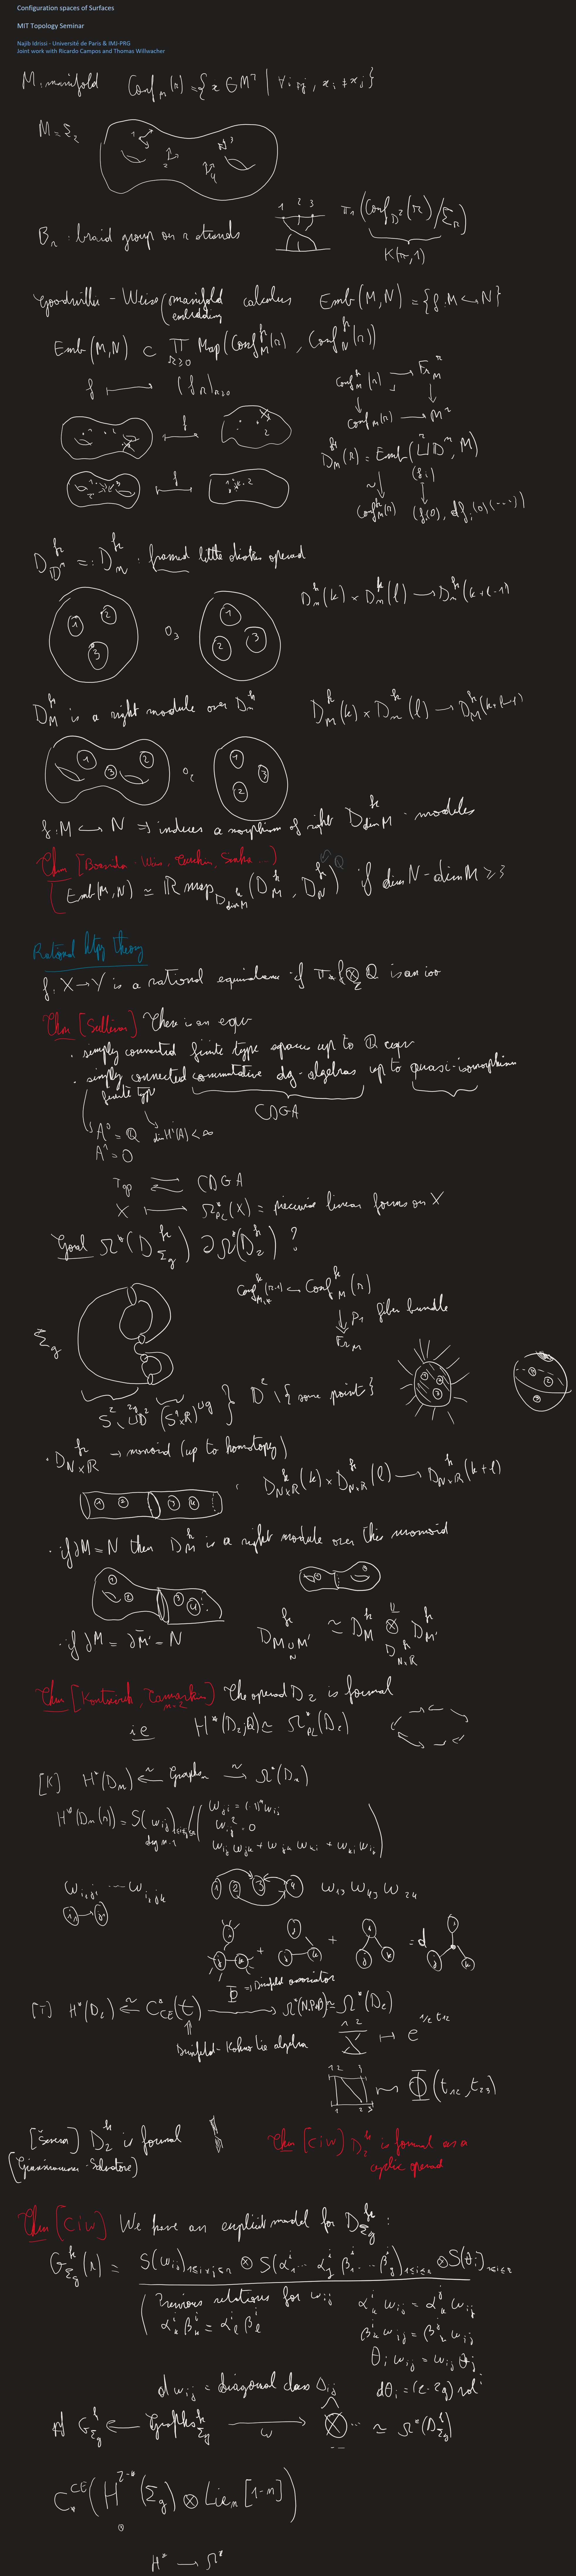 Configuration spaces of Surfaces
MIT Topology Seminar
Najib Idrissi - Université de Paris & IMJ-PRG
Joint work with Ricardo Campos and Thomas Willwacher
M: manifold Conf_M(r) = {x ∈ M^r | ∀ i≠j, x_i ≠ x_j}
M = Σ_2
B_r: braid group on r strands
π_1(Conf_{D^2}(r)/Σ_r)
K(π,1)
Goodwillie-Weiss manifold calculus Emb(M,N) = {f: M ↪ N}
embedding
Emb(M,N) ⊂ ∏_{r≥0} Map(Conf_M^fr(r), Conf_N^fr(r))
f ⟼ (f_r)_{r≥0}
Conf_M^fr(r) → Fr_M^r
Conf_M(r) → M^r
D_M^fr(r) = Emb(⊔^r D^n, M)
(f_i)
Conf_M^fr(r) (f_i(0), df_i(0)(...))
D_{D^n}^fr =: D_n^fr: framed little disks operad
D_n^fr(k) × D_n^fr(l) → D_n^fr(k+l-1)
D_M^fr is a right module over D_n^fr D_M^fr(k) × D_n^fr(l) → D_M^fr(k+l-1)
f: M ↪ N ⇒ induces a morphism of right D_{dim M}^fr-modules
Thm [Boavida-Weiss, Turchin, Sinha ...]
Emb(M,N) ≃ ℝmap_{D_{dim M}^fr}(D_M^fr, D_N^fr) if dim N - dim M ≥ 3
Rational htpy theory
f: X → Y is a rational equivalence if π_* f ⊗_ℤ ℚ is an iso
Thm [Sullivan] There is an equiv
· simply connected finite type spaces up to ℚ equiv
· simply connected commutative dg-algebras up to quasi-isomorphism
finite type
CDGA
A^0 = ℚ dim H^i(A) < ∞
A^1 = 0
Top ⇄ CDGA
X ⟼ Ω*_PL(X) = piecewise linear forms on X
Goal Ω*(D_{Σ_g}^fr) ↻ Ω*(D_2^fr)?
Conf_{M,*}^fr(r-1) ↪ Conf_M^fr(r)
p_1 fiber bundle
Fr_M
Σ_g
S^2 \ ⊔^{2g} D^2 (S^1×ℝ)^{⊔g} D^2 \ {some point}
· D_{N×ℝ}^fr → monoid (up to homotopy)
D_{N×ℝ}^fr(k) × D_{N×ℝ}^fr(l) → D_{N×ℝ}^fr(k+l)
· if ∂M = N then D_M^fr is a right module over this monoid
· if ∂M = ∂M' = N D_{M ∪_N M'}^fr ≃ D_M^fr ⊗^𝕃_{D_{N×ℝ}^fr} D_{M'}^fr
Thm [Kontsevich, Tamarkin n=2] The operad D_2 is formal
i.e. H*(D_2;ℚ) ≃ Ω*_PL(D_2)
[K] H*(D_n) ⟵~ Graphs_n ⟶~ Ω*(D_n)
H*(D_n(r)) = S(ω_ij)_{1≤i≠j≤r} / (ω_ji = (-1)^n ω_ij
deg n-1
ω_ij^2 = 0
ω_ij ω_jk + ω_jk ω_ki + ω_ki ω_ij)
ω_{i1j1} ... ω_{ikjk}
1 2 3 4 ω_13 ω_43 ω_24
+ + = d
Φ → Drinfeld associator
[T] H*(D_2) ⟵~ C*_CE(t) ⟶ Ω*(N.PaB) ≃ Ω*(D_2)
Drinfeld-Kohno Lie algebra
1 2 ↦ e^{1/2 t12}
Φ(t_12, t_23)
[Ševera] D_2^fr is formal
(Giansiracusa-Salvatore)
Thm [CIW] D_2^fr is formal as a
cyclic operad
Thm [CIW] We have an explicit model for D_{Σ_g}^fr:
G_{Σ_g}^fr(r) = S(ω_ij)_{1≤i≠j≤r} ⊗ S(α_1^i ... α_g^i β_1^i ... β_g^i)_{1≤i≤r} ⊗ S(θ_i)_{1≤i≤r}
Previous relations for ω_ij α_k^i ω_ij = α_k^j ω_ij
α_k^i β_k^i = α_l^i β_l^i β_k^i ω_ij = β_k^j ω_ij
θ_i ω_ij = ω_ij θ_j
dω_ij = diagonal class Δ_ij dθ_i = (2-2g) vol^i
G_{Σ_g}^fr ⟵ Graphs_{Σ_g}^fr ⟶ω ⊗... ≃ Ω*(D_{Σ_g}^fr)
C_*^CE(H^{2-*}(Σ_g) ⊗ Lie_n[1-n])
H* → Ω*